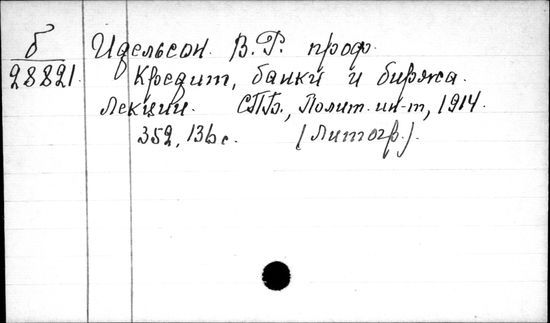 б
28821
Идельсон. В.Р. проф.
Кредит, банки и биржа.
Лекции. СПБ., Полит. ин-т, 1914.
352, 136 с. (Литогр.).